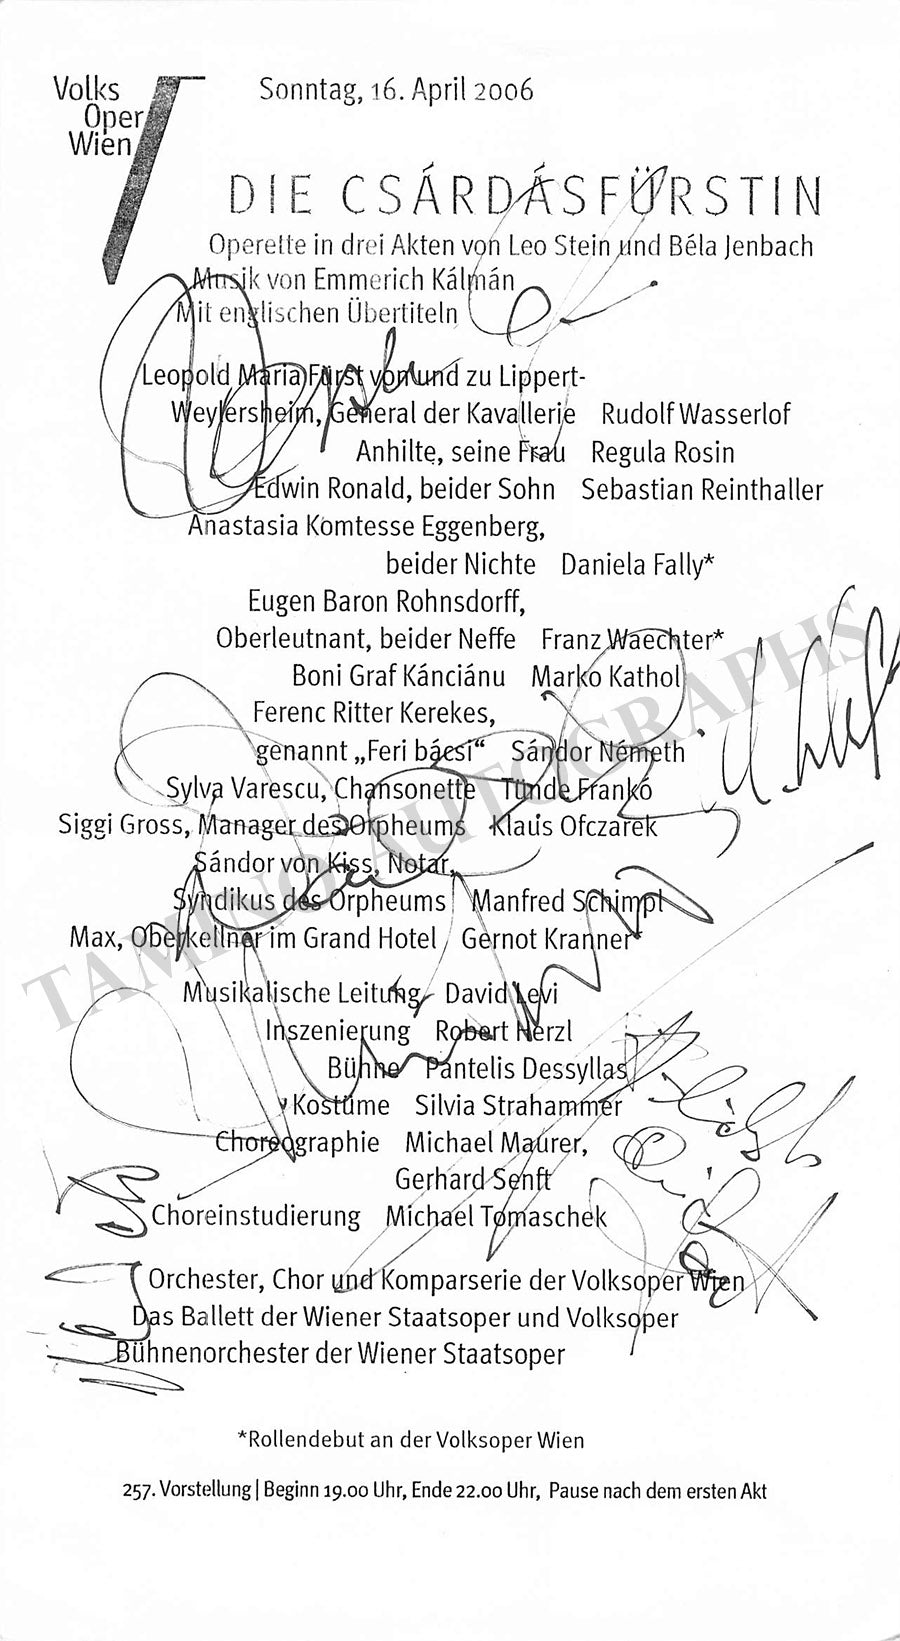 Volks
Oper
Wien
Sonntag, 16. April 2006
DIE CSÁRDÁSFÜRSTIN
Operette in drei Akten von Leo Stein und Béla Jenbach
Musik von Emmerich Kálmán
Mit englischen Übertiteln
Leopold Maria Fürst von und zu Lippert-
Weylersheim, General der Kavallerie Rudolf Wasserlof
Anhilte, seine Frau Regula Rosin
Edwin Ronald, beider Sohn Sebastian Reinthaller
Anastasia Komtesse Eggenberg,
beider Nichte Daniela Fally*
Eugen Baron Rohnsdorff,
Oberleutnant, beider Neffe Franz Waechter*
Boni Graf Kánciánu Marko Kathol
Ferenc Ritter Kerekes,
genannt „Feri bácsi“ Sándor Németh
Sylva Varescu, Chansonette Tünde Frankó
Siggi Gross, Manager des Orpheums Klaus Ofczarek
Sándor von Kiss, Notar,
Syndikus des Orpheums Manfred Schimpl
Max, Oberkellner im Grand Hotel Gernot Kranner*
Musikalische Leitung David Levi
Inszenierung Robert Herzl
Bühne Pantelis Dessyllas
Kostüme Silvia Strahammer
Choreographie Michael Maurer,
Gerhard Senft
Choreinstudierung Michael Tomaschek
Orchester, Chor und Komparserie der Volksoper Wien
Das Ballett der Wiener Staatsoper und Volksoper
Bühnenorchester der Wiener Staatsoper
*Rollendebut an der Volksoper Wien
257. Vorstellung | Beginn 19.00 Uhr, Ende 22.00 Uhr, Pause nach dem ersten Akt
TAMINO AUTOGRAPHS